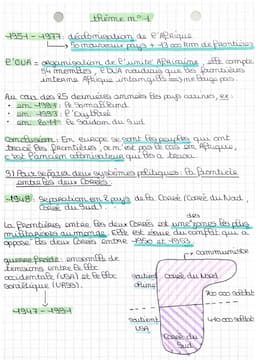 thème n° 1
-1951 - 1977 : décolonisation de l'Afrique
↳ 50 nouveaux pays + 13 000 km de frontières
l'OUA = organisation de l'unité Africaine, elle compte
54 membres, l'OUA voudrais que les frontières
interne Afrique intangibles sur les pays.
Au cour des 25 dernières années les pays suivies, ex :
- en 1991 : le Somaliland
- en 1993 : l'Érythrée
- en 2011 : le Soudan du Sud
Conclusion : En europe se sont les peuples qui ont
tracé les frontières, ce n'est pas le cas en Afrique,
c'est l'ancien colonisateur qui les a tracé
3) Pour séparé deux systèmes politiques : la frontière
entre les deux Corées :
-1948 : Séparation en 2 pays de la Corée (Corée du Nord,
Corée du Sud)
La frontières entre les deux Corées est une zones les plus
des
militarisées au monde. Elle est issue du conflit qui a
opposé les deux Corées entre 1950 et 1953.
guerre froide : ensemble de
tensions entre le bloc
occidentale (USA) et le bloc
soviétique (URSS).
↳ 1947 - 1991
communiste
Corée du Nord
soutient
700 000 soldats
soutient
USA
Corée du
Sud